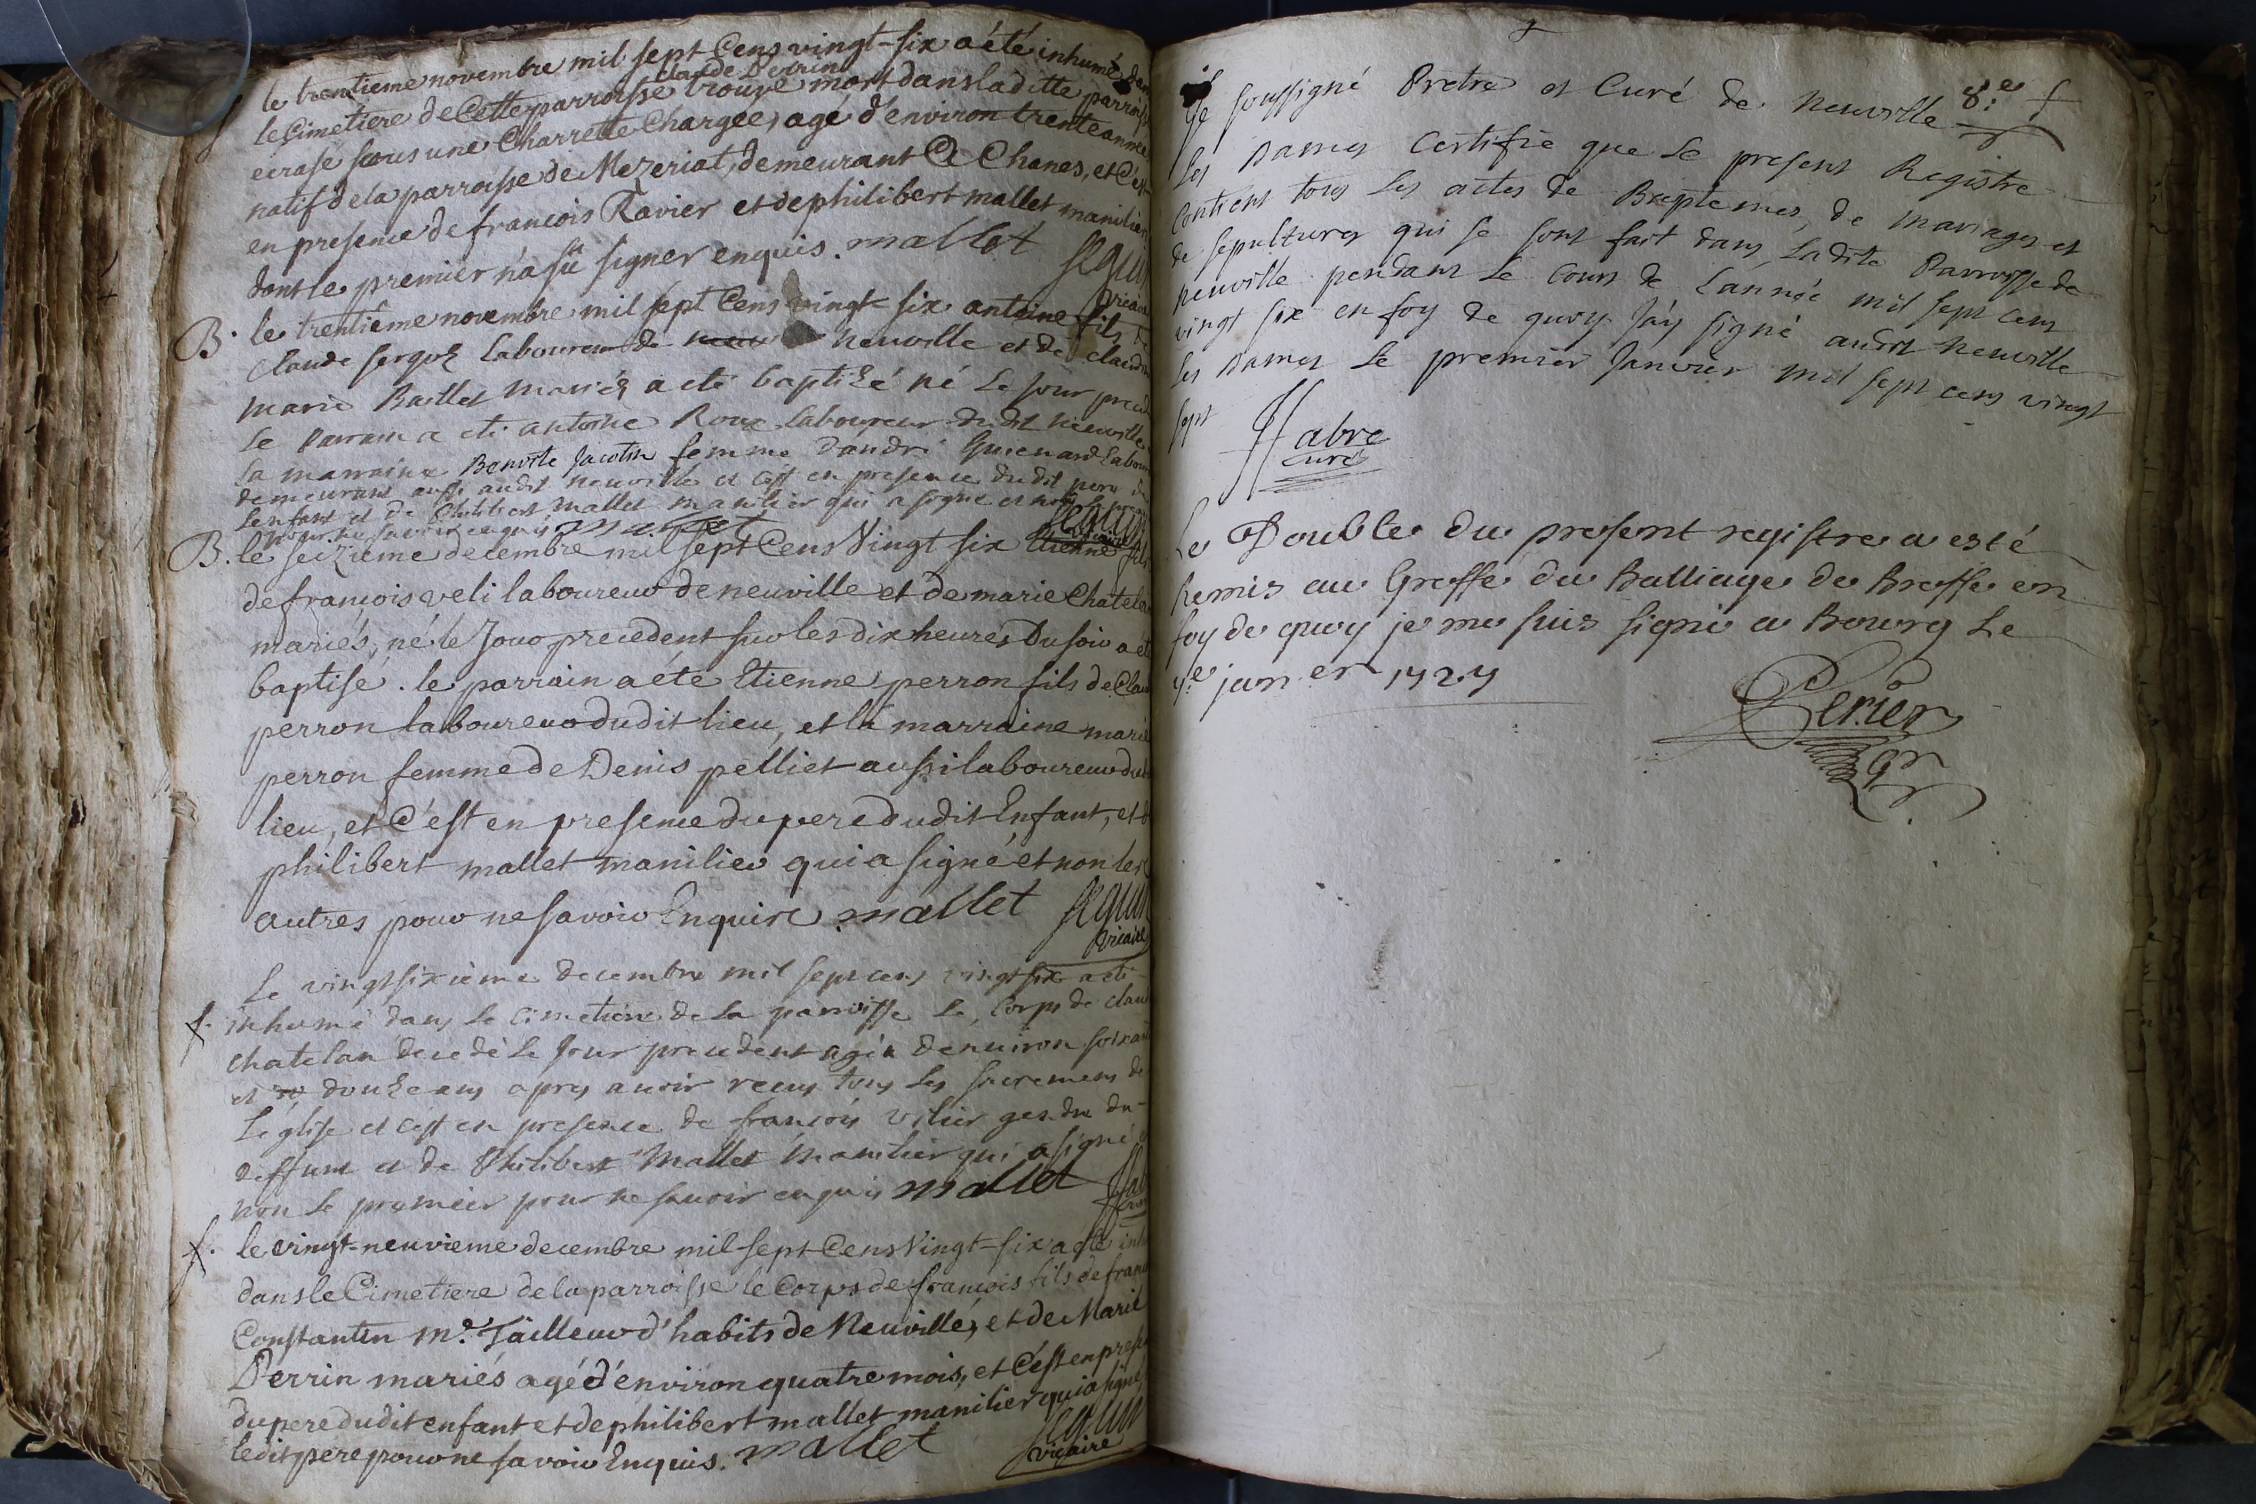 le trentieme novembre mil sept Cens vingt-six a été inhumé dans
le Cimetiere de Cette parroisse claude Perrin trouvé mort dans la ditte parroisse
ecrasé sous une Charrette Chargée, agé d'environ trente années
natif de la parroisse de Mezeriat, demeurant a Chanes, et C'est
en presence de francois Ravier et de philibert mallet manilier
dont le premier n'a sû signer enquis. mallet Seguin
vicaire
B. le trentième novembre mil sept Cens vingt six antoine fils de
Claude laboureur de neuville et de claudine
marie Baillet mariés a eté baptizé né le jour preced
le parrain a eté antoine Roux laboureur dudit neuville
la marraine Benoite Jacotin femme d'andré Guienard labour
demeurant aussi audit neuville et c'est en presence dudit pere de
l'enfant et de Philibert mallet manilier qui a signé et non
pour ne savoir enquis mallet Seguin
vicaire
B. le seizieme decembre mil sept Cens Vingt six Etienne fils
de francois veli laboureur de neuville et de marie Chatelan
mariés, né le Jour precedent sur les dix heures Du soir a été
baptisé. le parrain a été Etienne perron fils de Claude
perron laboureur dudit lieu, et la marraine marie
perron femme de Denis pelliet aussi laboureur dudit
lieu, et C'est en presence du pere dudit Enfant, et de
philibert mallet manilier qui a signé et non les
autres pour ne savoir Enquire. mallet Seguin
vicaire
Le vingt sixieme decembre mil sept cens vingt six a eté
f. inhumé dans le cimetiere de la parroisse le Corps de claude
chatelan decedé le jour precedent agéa denuiron soixante
et douze ans apres auoir receu tous les sacremens de
L'église et c'est en presence de francois gendre du
deffunt et de Philibert Mallet Manilier qui a signé et
non le premier pour ne savoir enquis mallet ffabre
curé
f. le vingt-neuvieme decembre mil sept Cens Vingt-six a été inhu
dans le Cimetiere de la parroisse le Corps de francois fils de franc
Constantin me. Tailleur d'habits de Neuville, et de Marie
Perrin mariés agé d'environ quatre mois, et C'est en presen
du pere dudit enfant et de philibert mallet manilier qui a signé
ledit pere pour ne savoir Enquis. mallet Seguin
vicaire
8.e f
Je soussigné Pretre et Curé de Neuville
les Dames certifie que le present Registre
contient tous les actes de Baptemes, de mariages et
de sepultures qui se sont fait dans ladite Parroisse de
neuville pendant le cours de l'année mil sept cens
vingt six en foy de quoy J'ay signé audit neuville
les Dames le premier Janvier mil sept cens vingt
sept ffabre
curé
Le Double du present registre a esté
Remis au Greffe du Balliage de Bresse en
foy de quoy je me suis signé a Bourg Le
janer 1727
Perier
Gr